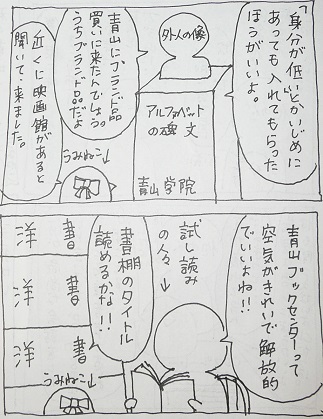 「身分が低いとかいじめに
あっても入れてもらった
ほうがいいよ。
外人の像
青山にブランド品
買いに来たんでしょう。
うちブランド品だよ
アルファベット
の碑文
青山学院
近くに映画館があると
聞いて、来ました。
うみねこ↓
青山ブックセンターって
空気がきれいで解放的
でいいよね!!
試し読み
の人々↓
書棚のタイトル
読めるかな!!
洋書
洋書
洋書
洋書
うみねこ↓